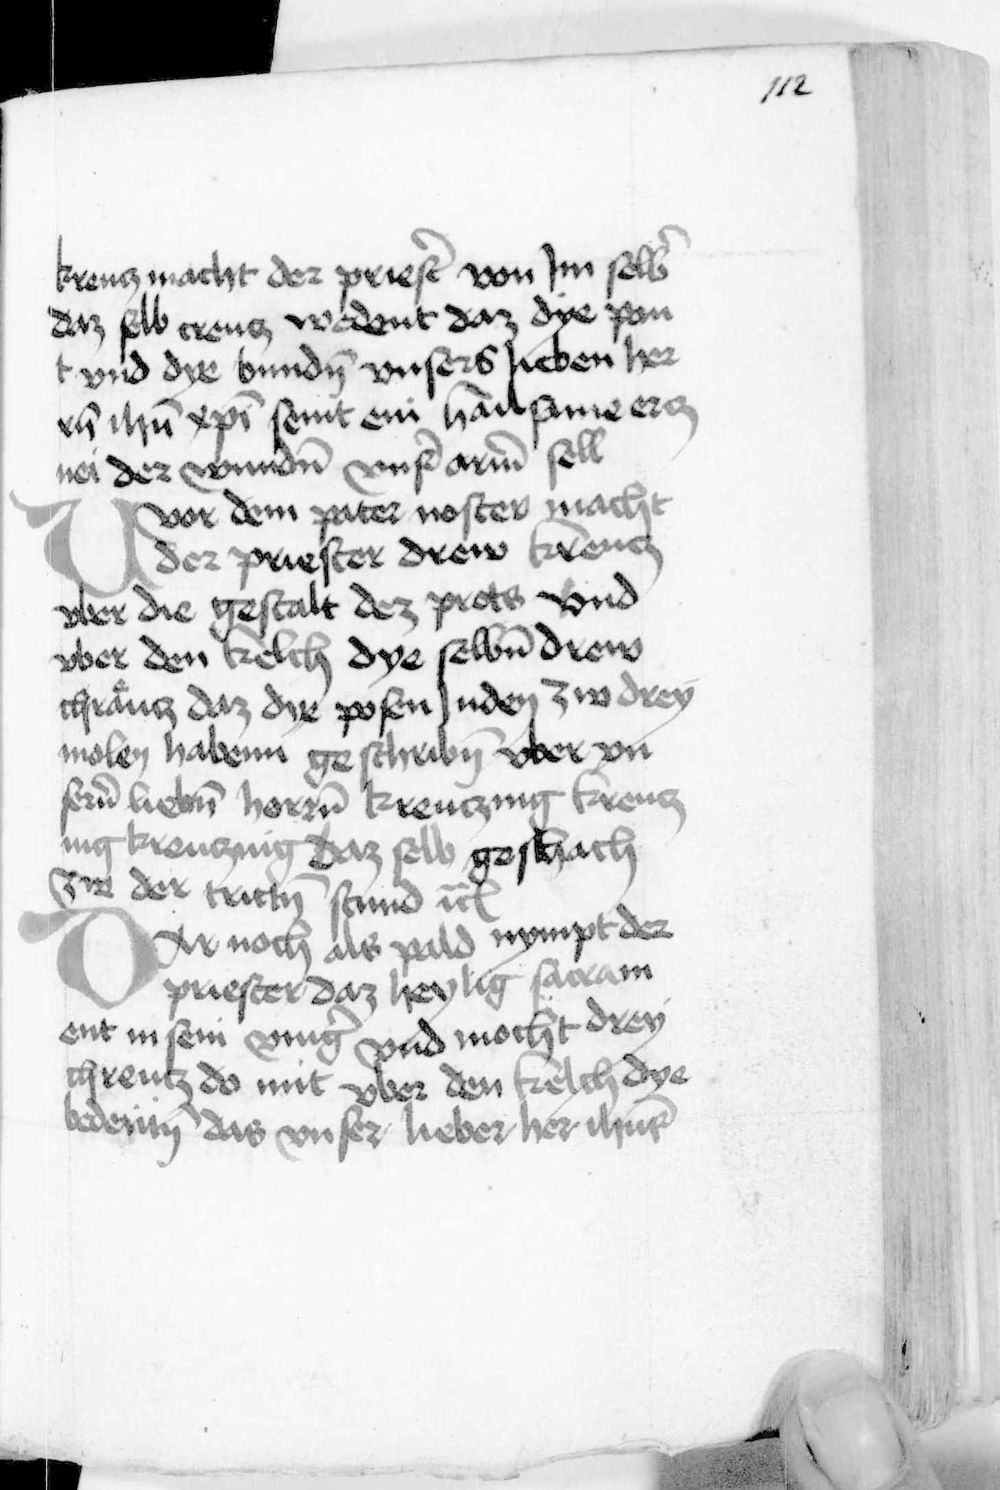 112
kreucz macht der priest̄ von Jm selb̄
daz selb creucz wedeut daz dye pan
t vnd dye bundn̄ vnsers lieben her
rn̄ ihū xp̄i seint ein hailsame ercz
nei der wundn̄ vnser̄ arm̄ sell
Vvor dem pater noster macht
der priester drew kreucz
vber die gestalt dez prots vnd
vber den kelch dye selbn̄ drew
chraͤucz daz dye posen Juden zw drey
molen habenn geschribn̄ vber vn
sern̄ liebn̄ herrn̄ kreuczung kreucz
ung kreuczung daz selb geschach
zw der trittn̄ stund
Dar noch als pald nympt der
priester daz heylig sacram
ent in sein vinḡ vnd mocht drey
chreucz do mit vber den kelch dye
bedeutn̄ das vnser lieber her ihūs